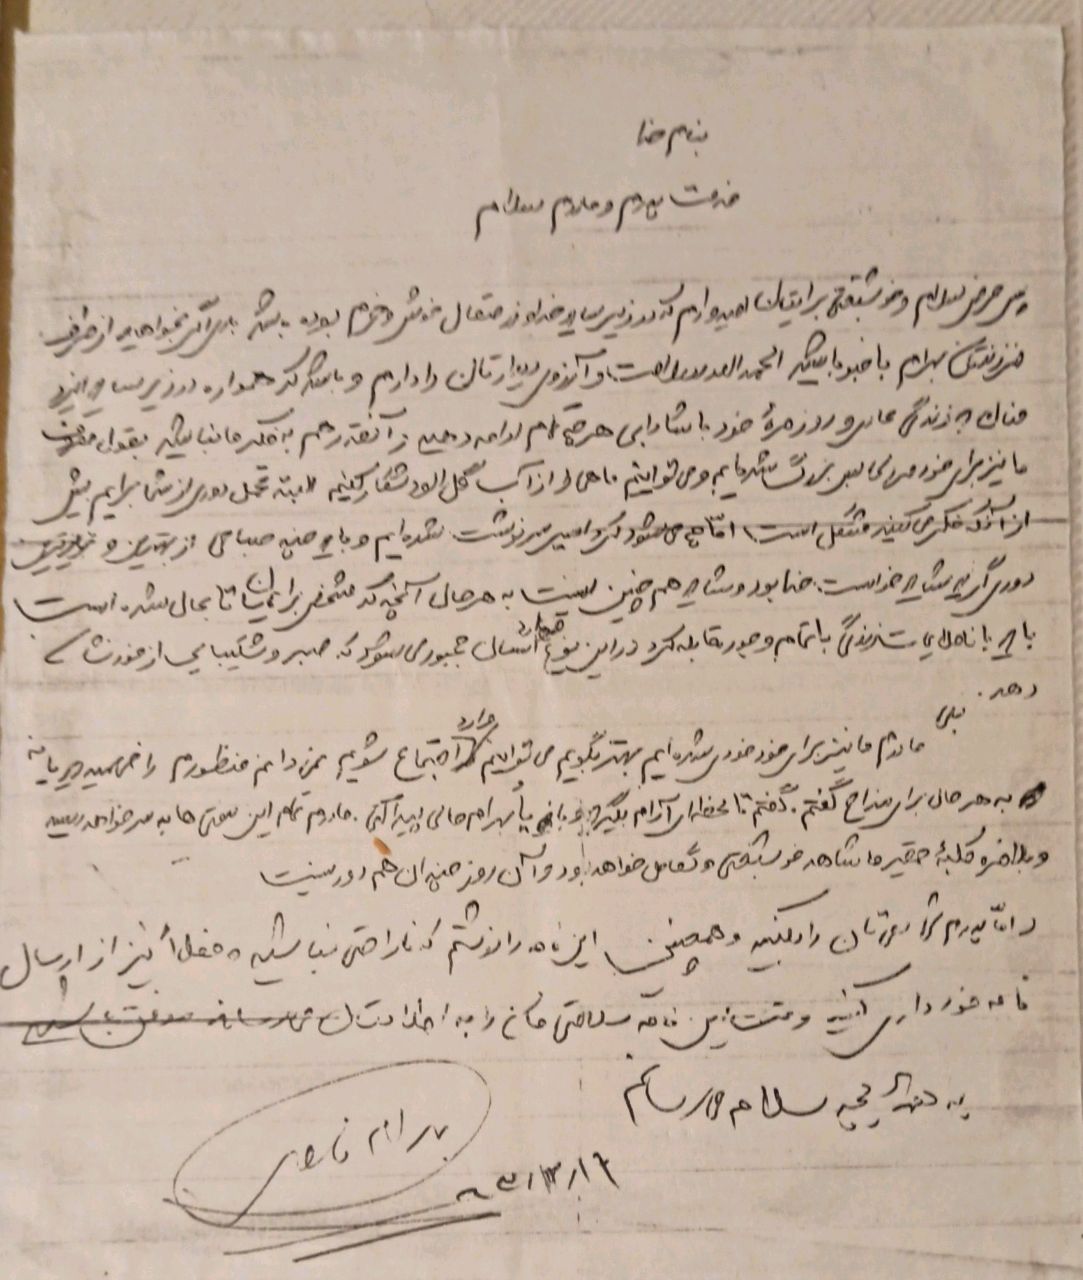 بنام خدا
خدمت پدرم و مادرم سلام
پس عرض سلام و خوشبختی برایتان امیدوارم که در زیر سایه خداوند متعال خوش و خرم بوده باشید باری اگر بخواهید از طرف
فرزندتان بهرام با خبر باشید الحمدالله سلامت و آرزوی دیدارتان را دارم و باشد که همواره در زیر سایه ایزد
منان به زندگی عادی و روزمرهٔ خود با شادابی هر چه تمام ادامه دهید در آنقدر هم به فکر ما نباشید بقول معروف
ما نیز برای خود مردی بزرگ شده‌ایم و می توانیم ماهی را از آب گل آلود شکار کنیم البته تحمل دوری از شما برایم بیش
از آنکه فکر می کنید مشکل است اما چه می شود کرد اسیر سرنوشت شده ایم و باید چند صباحی از بهترین و عزیزترین
دوری گزید شاید خواست خدا بود و شاید هم چنین نیست به هر حال آنچه که مشخص برایمان تا بحال شده است
باید با ناملایمات زندگی با تمام وجود مقابله کرد در این نوع موارد انسان مجبور می شود که صبر و شکیبایی از خود نشان
دهد. بلی
مادرم ما نیز برای خود مردی شده ایم بهتر بگویم می توانیم وارد اجتماع شویم نمی دانم منظورم را فهمیدید یا نه
به هر حال برای مزاح گفتم. گفتم تا لحظه ای آرام بگیرید و با یاد بهرام حالی پیدا کنی. مادرم تمام این سختی ها به سر خواهد رسید
و بالاخره کلبهٔ حقیر ما شاهد خوشبختی و تکامل خواهد بود و آن روز چندان هم دور نیست
و اما پدرم تان را و همچنین این نامه را نوشتم که ناراحتی نباشید و فعلاً نیز از ارسال
نامه خودداری کنید و این نامه سلامتی مان را به اطلاعتان می رساند
به سلام می رسانم
بهرام